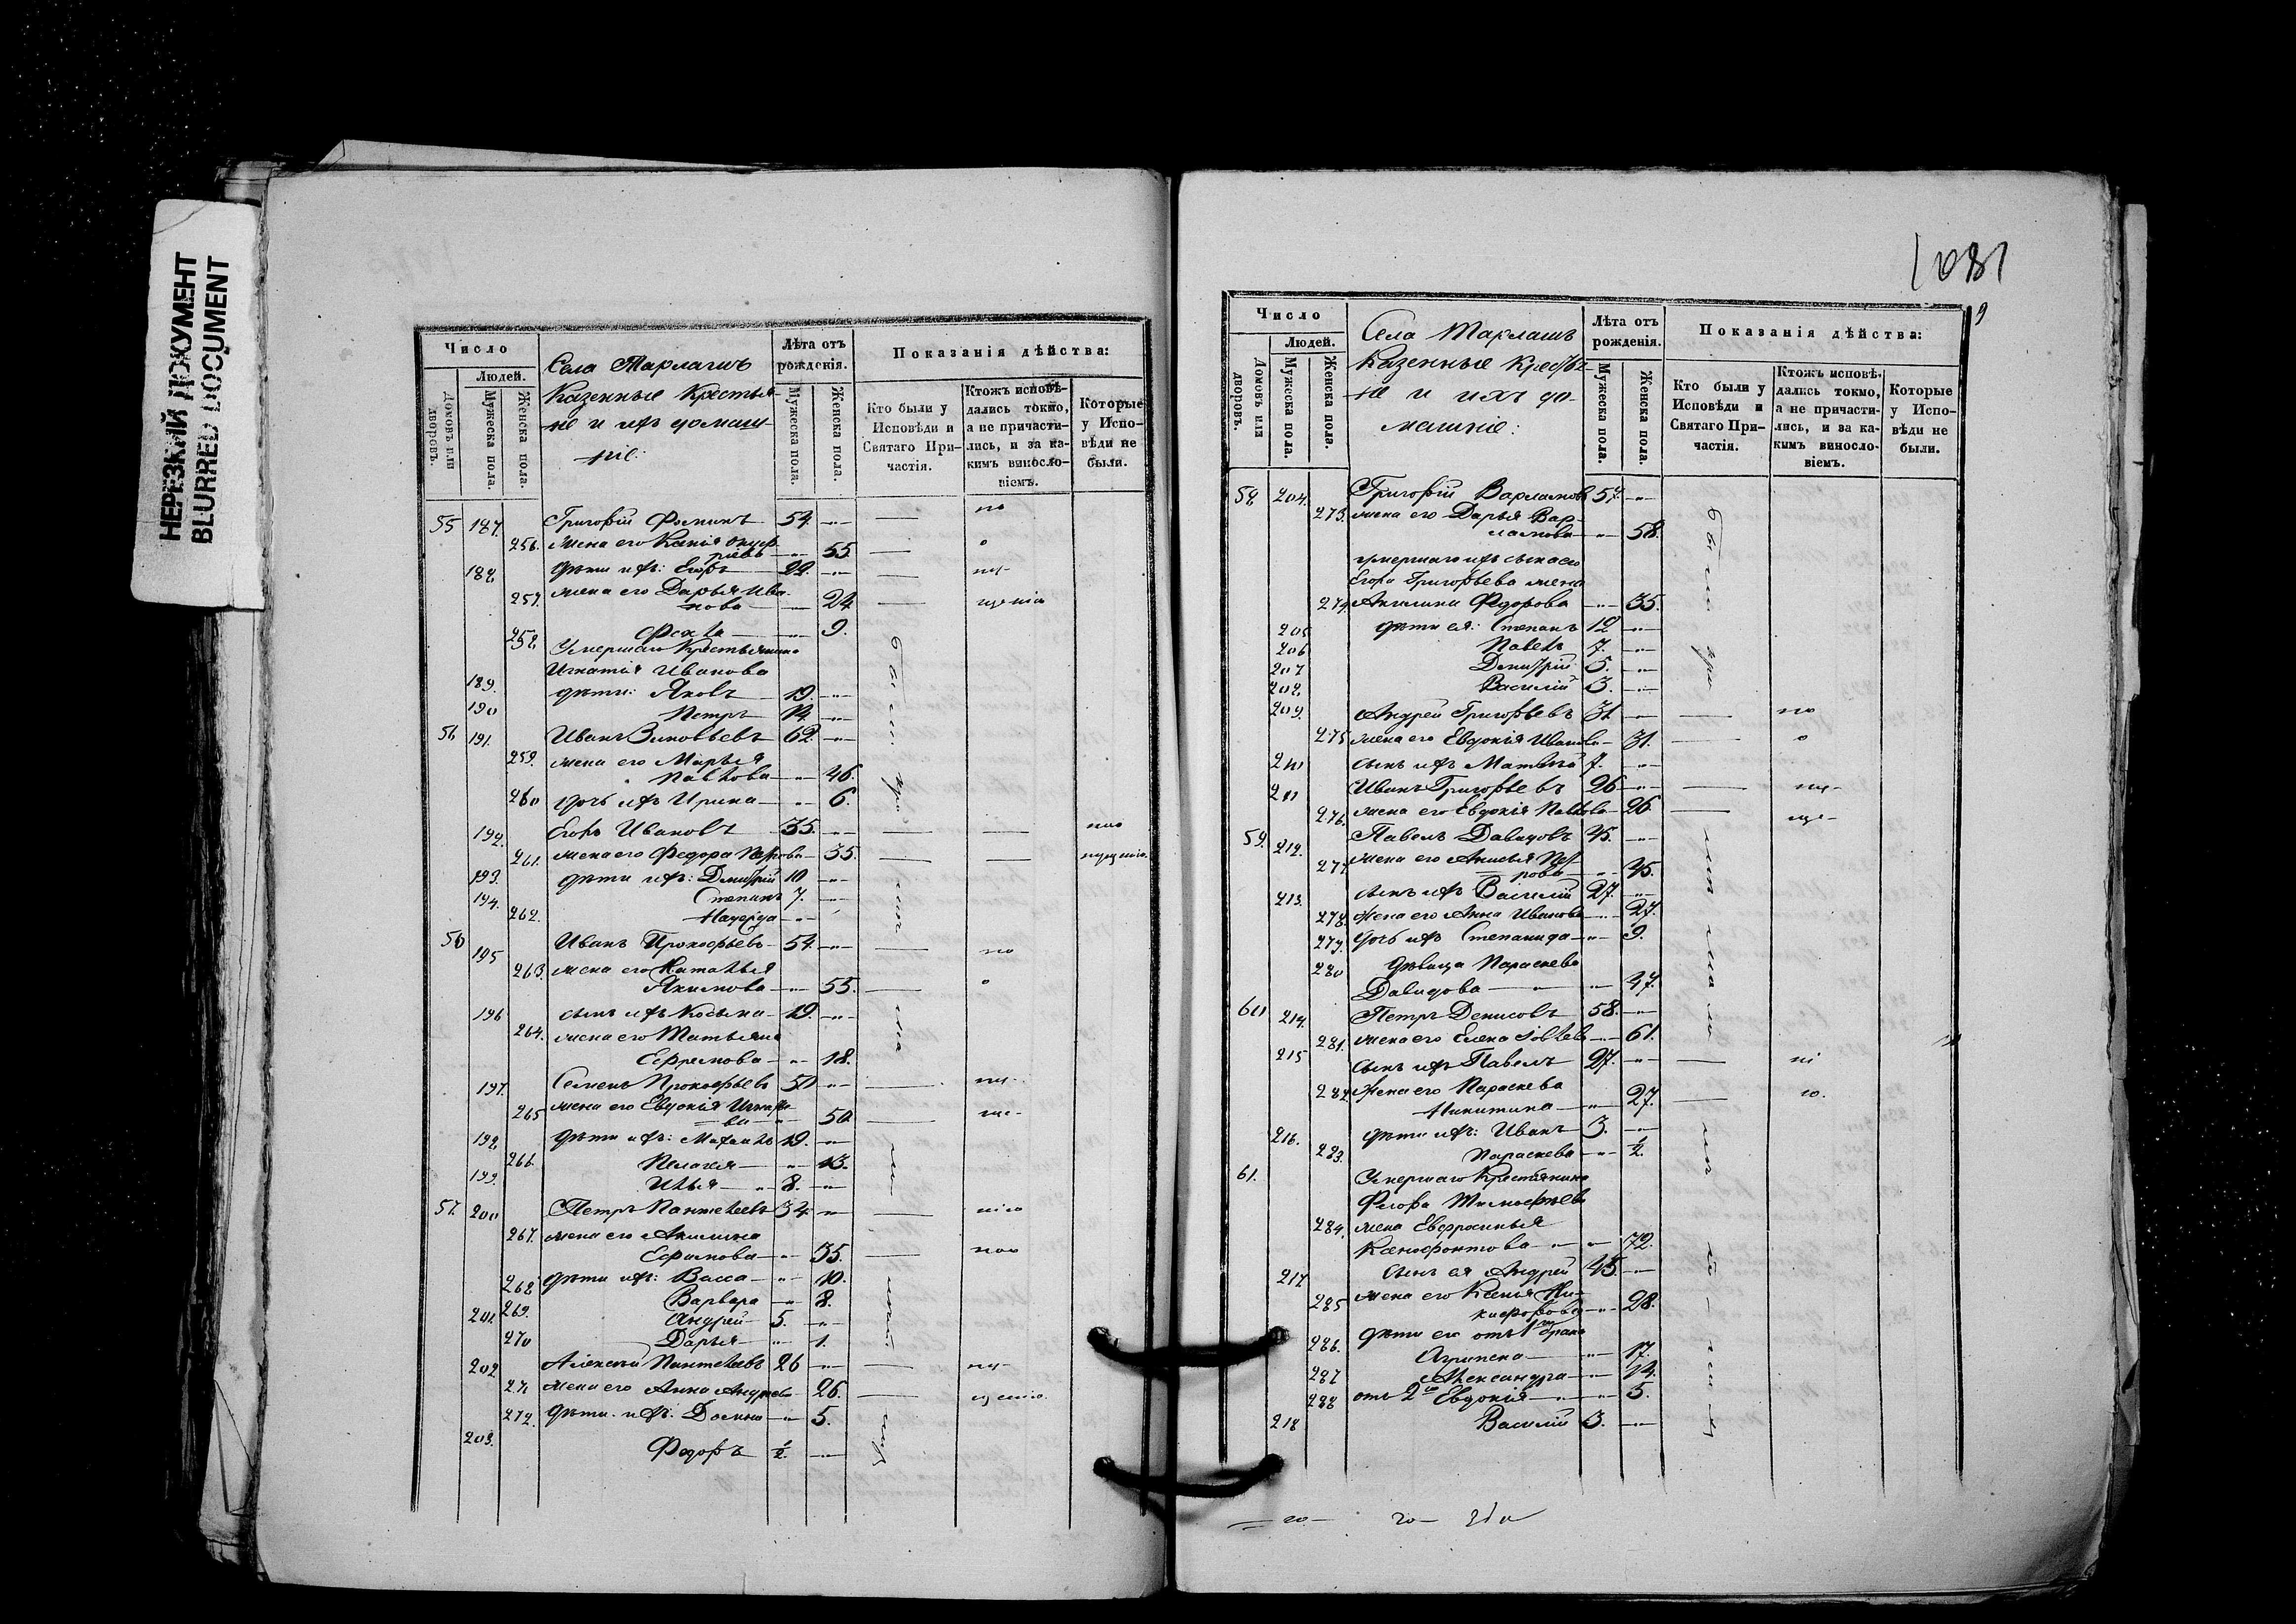 НЕРЕЗКИЙ ДОКУМЕНТ
BLURRED DOCUMENT
Число
Людей.
Домовъ или дворовъ.
Мужеска пола.
Женска пола.
Села Тарлашъ
Казенные Крестья-
не и ихъ домаш-
ніе:
Лѣта отъ рожденія.
Мужеска пола.
Женска пола.
Показанія дѣйства:
Кто были у Исповѣди и Святаго При-частія.
Ктожъ исповѣ-дались токмо, а не причасти-лись, и за ка-кимъ винослο-віемъ.
Которые у Испо-вѣди не были.
55 187. Григорій Фоминъ 54.
256. жена его Ксенія
55.
188 дѣти ихъ: Егоръ 22.
257. жена его Дарья Ива-
нова 24
258 9.
Умершаго Крестьянина
Игнатія Иванова
189. дѣти: Яковъ 19.
190 Петръ 14.
56 191. Иванъ Зиновьевъ 62.
259. жена его Марья
Павлова 46.
260 дочь ихъ Ирина 6.
192. Егоръ Ивановъ 35.
261. жена его Федора Петрова 35.
193. дѣти ихъ: Димитрій 10
194. Степанъ 7.
262. Надежда
56 195 Иванъ Прокофьевъ 54.
263. жена его Наталья
Якимова 55.
196 сынъ ихъ Косьма 19.
264. жена его Татьяна
Ефремова 18.
197. Семенъ Прокофьевъ 50
265 жена его Евдокія
50
198 дѣти ихъ: 19.
266. Пелагея 13.
199. Илья 8.
57. 200 Петръ Пантелеевъ 34.
267. жена его Акилина
Ефимова 35.
268 дѣти ихъ: Васса 10.
269. Варвара 8.
201 Андрей 5.
270 Дарья 1.
202 Алексѣй Пантелеевъ 26
271 жена его Анна Андреева 26.
272. дѣти ихъ: Домна 5.
203. Федоръ ½
1081
9
Число
Людей.
Домовъ или дворовъ.
Мужеска пола.
Женска пола.
Села Тарлашъ
Казенные Крестья-
не и ихъ до-
машніе:
Лѣта отъ рожденія.
Мужеска пола.
Женска пола.
Показанія дѣйства:
Кто были у Исповѣди и Святаго При-частія.
Ктожъ исповѣ-дались токмо, а не причасти-лись, и за ка-кимъ винослο-віемъ.
Которые у Испо-вѣди не были.
58 204. Григорій Варламовъ 57.
273. жена его Дарья Вар-
ламова 58.
умершаго ихъ сына
Егора Григорьева жена
274. Акилина Федорова 35.
205 дѣти ея: Степанъ 12
206 Павелъ 7.
207 Димитрій 5.
208 Василій 3.
209. Андрей Григорьевъ 31
275 жена его Евдокія Иванова 31.
210 сынъ ихъ Матвѣй 7.
211 Иванъ Григорьевъ 26
276. жена его Евдокія Павлова 26
59. 212. Павелъ Давидовъ 45.
277 жена его Анисья Пет-
рова 45.
213. сынъ ихъ Василій 27.
278. жена его Анна Иванова 27.
279. дочь ихъ Степанида 9.
280 дѣвица Параскева
Давидова 47.
60 214. Петръ Денисовъ 58.
281. жена его Елена 61.
215 сынъ ихъ Павелъ 27.
282. жена его Параскева
Никитина 27.
216. дѣти ихъ: Иванъ 3.
283. Параскева ½.
61. Умершаго Крестьянина
Флора Тимофѣева
284. жена Евфросинья
Ксенофонтова 72.
217 сынъ ея Андрей 45
285 жена его Ксенья Ни-
кифорова 28.
дѣти его отъ 1го брака
286. Агрипена 17.
287 Александра 14.
288 отъ 2го Евдокія 5.
218 Василій 3.